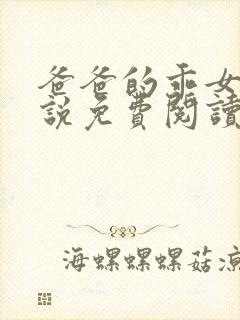 爸爸的乖女
說免費閱讀
海螺螺螺菇凉